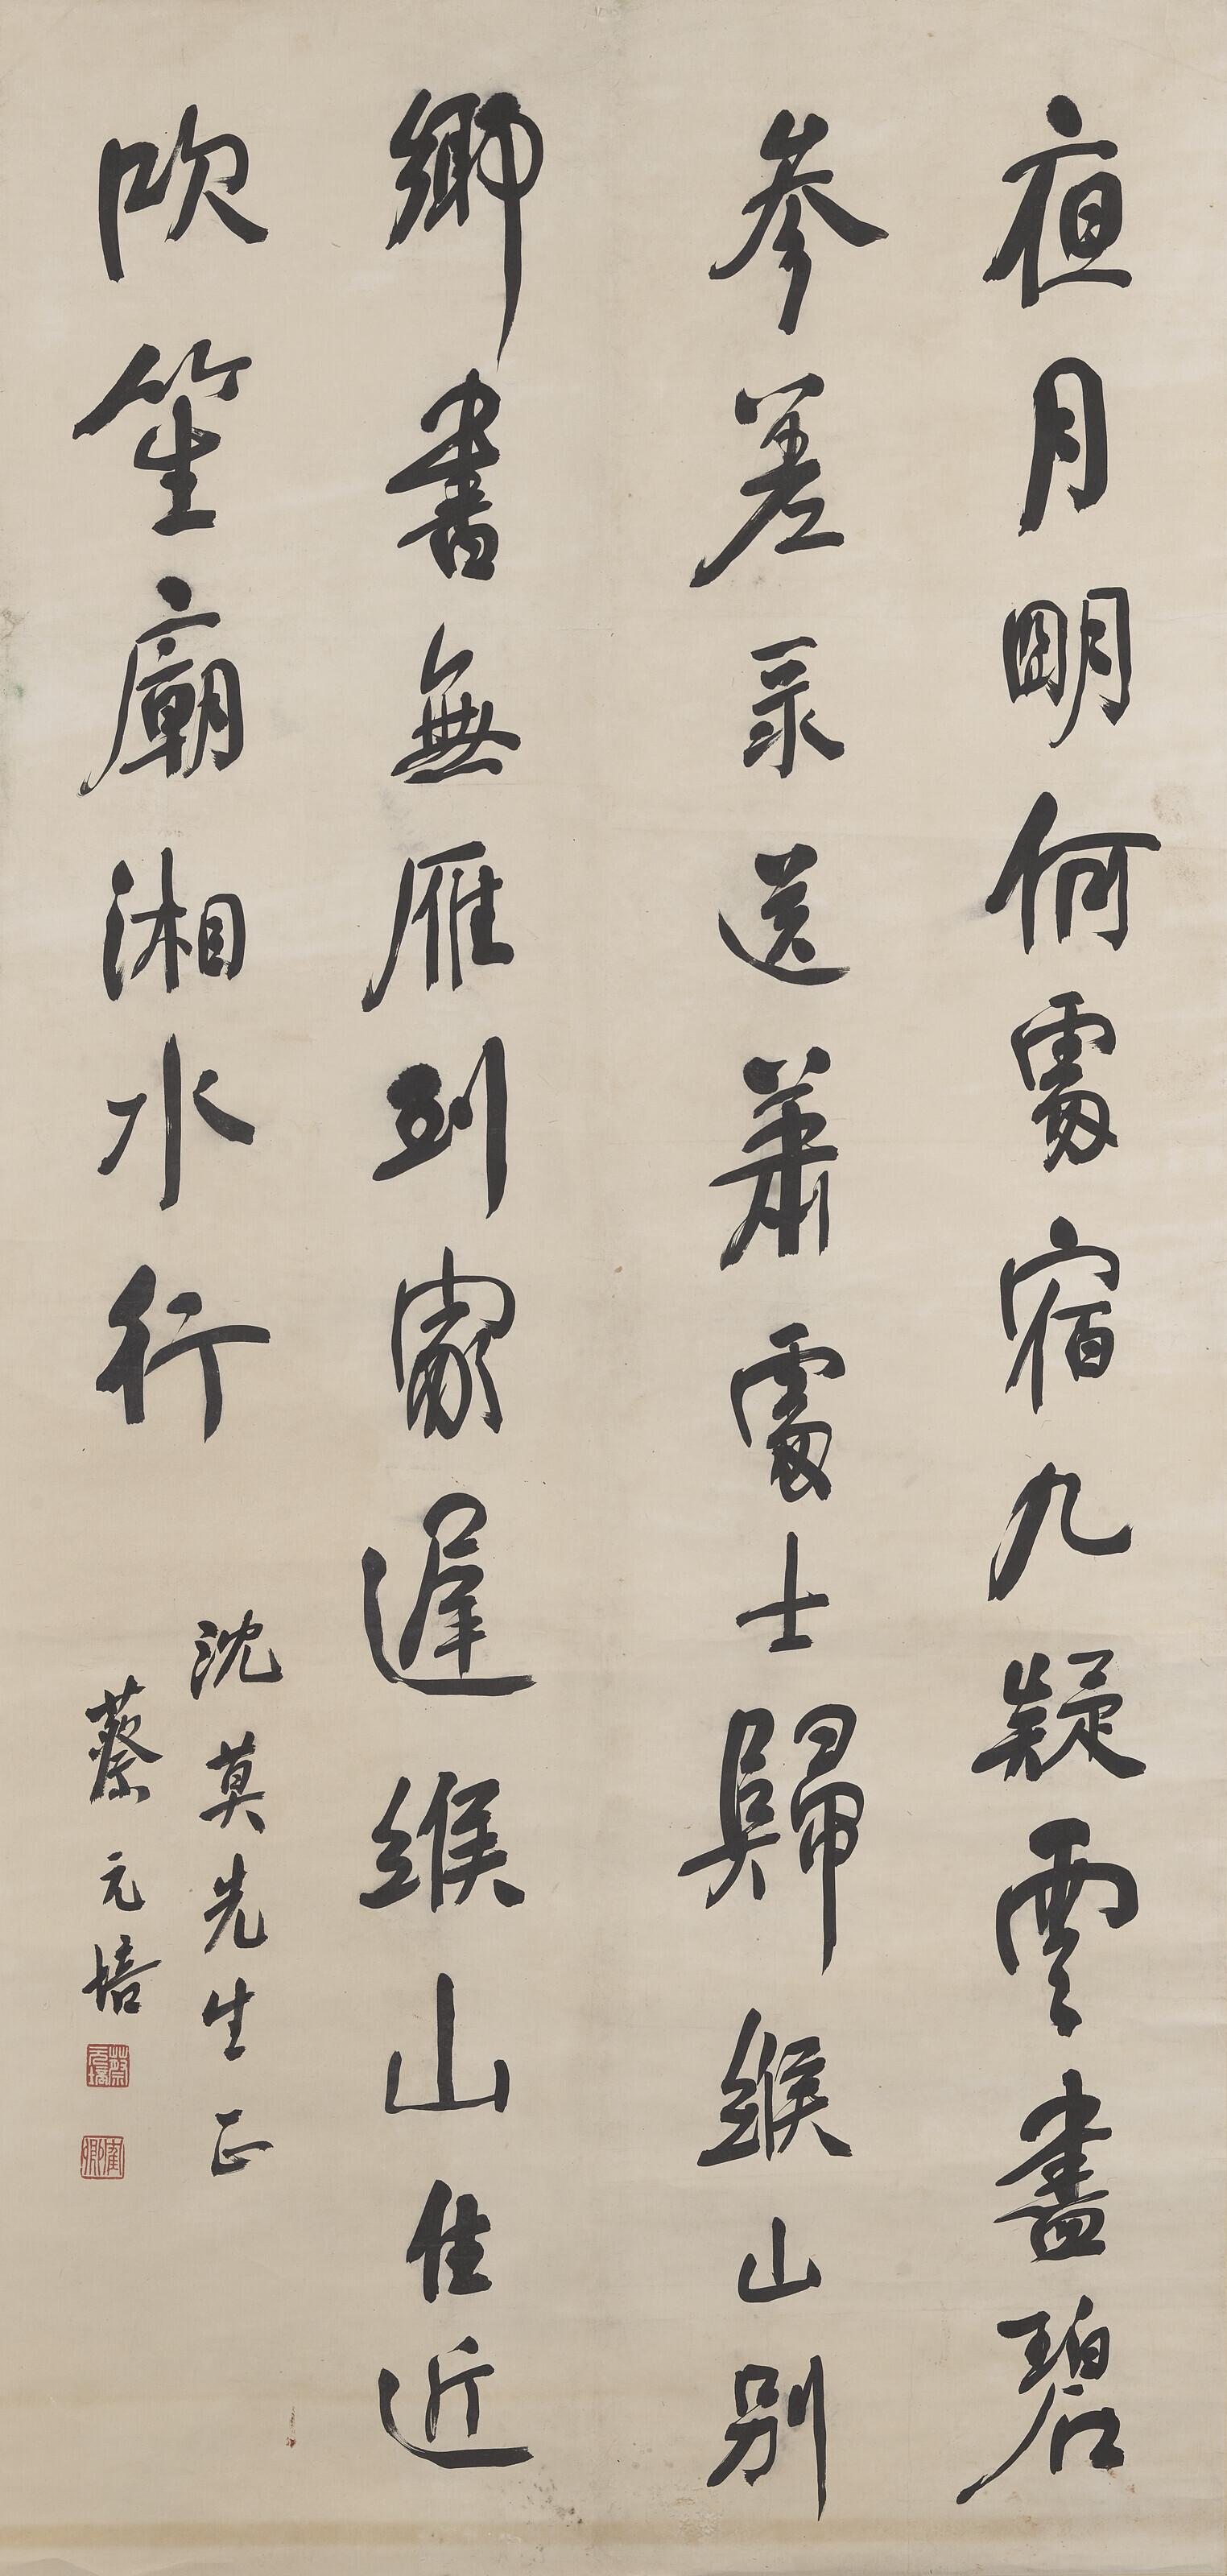 夜月明何處宿九疑雲盡碧
參差录送蕭處士歸緱山別
鄉書無雁到家遲緱山住近
吹笙廟湘水行
沈莫先生正
蔡元培
蔡元培